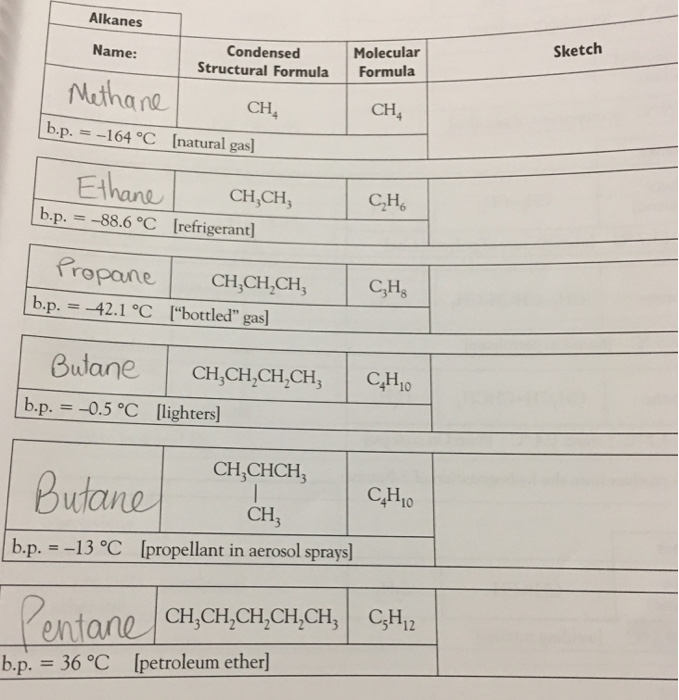 Alkanes
Name: Condensed Structural Formula Molecular Formula Sketch
Methane CH₄ CH₄
b.p. = –164 °C [natural gas]
Ethane CH₃CH₃ C₂H₆
b.p. = –88.6 °C [refrigerant]
Propane CH₃CH₂CH₃ C₃H₈
b.p. = –42.1 °C ["bottled" gas]
Butane CH₃CH₂CH₂CH₃ C₄H₁₀
b.p. = –0.5 °C [lighters]
CH₃CHCH₃
Butane | C₄H₁₀
CH₃
b.p. = –13 °C [propellant in aerosol sprays]
Pentane CH₃CH₂CH₂CH₂CH₃ C₅H₁₂
b.p. = 36 °C [petroleum ether]